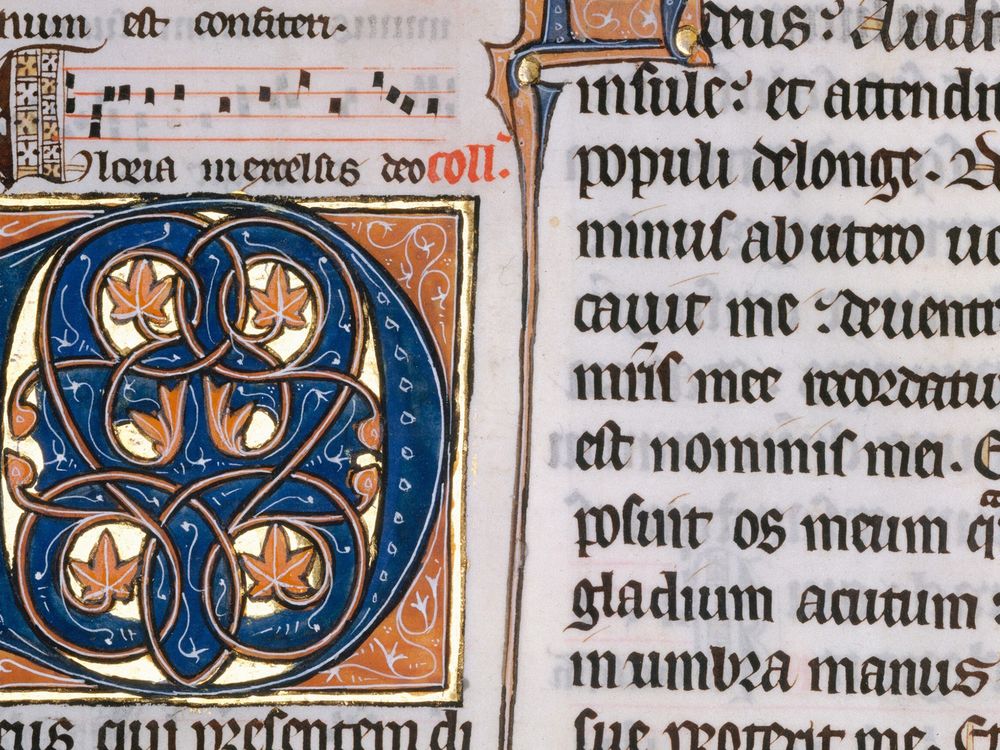 num est confiteri.
Gloria in excelsis deo coll'.
Deus qui presentem di
deus: Audi
insule: et attendi
populi delonge. D
minus ab utero uo
cauit me: deuentr
mr̄is mee recordatu
est nominis mei. E
posuit os meum q
gladium acutum:
in umbra manus
sue protexit me. Et